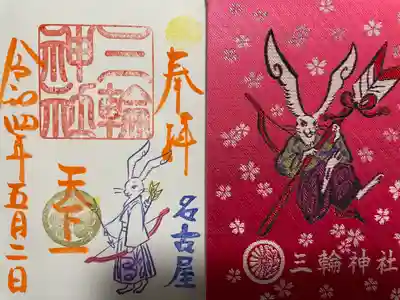 奉拝
三輪
神社
天下一
名古屋
令和四年五月二日
三輪神社